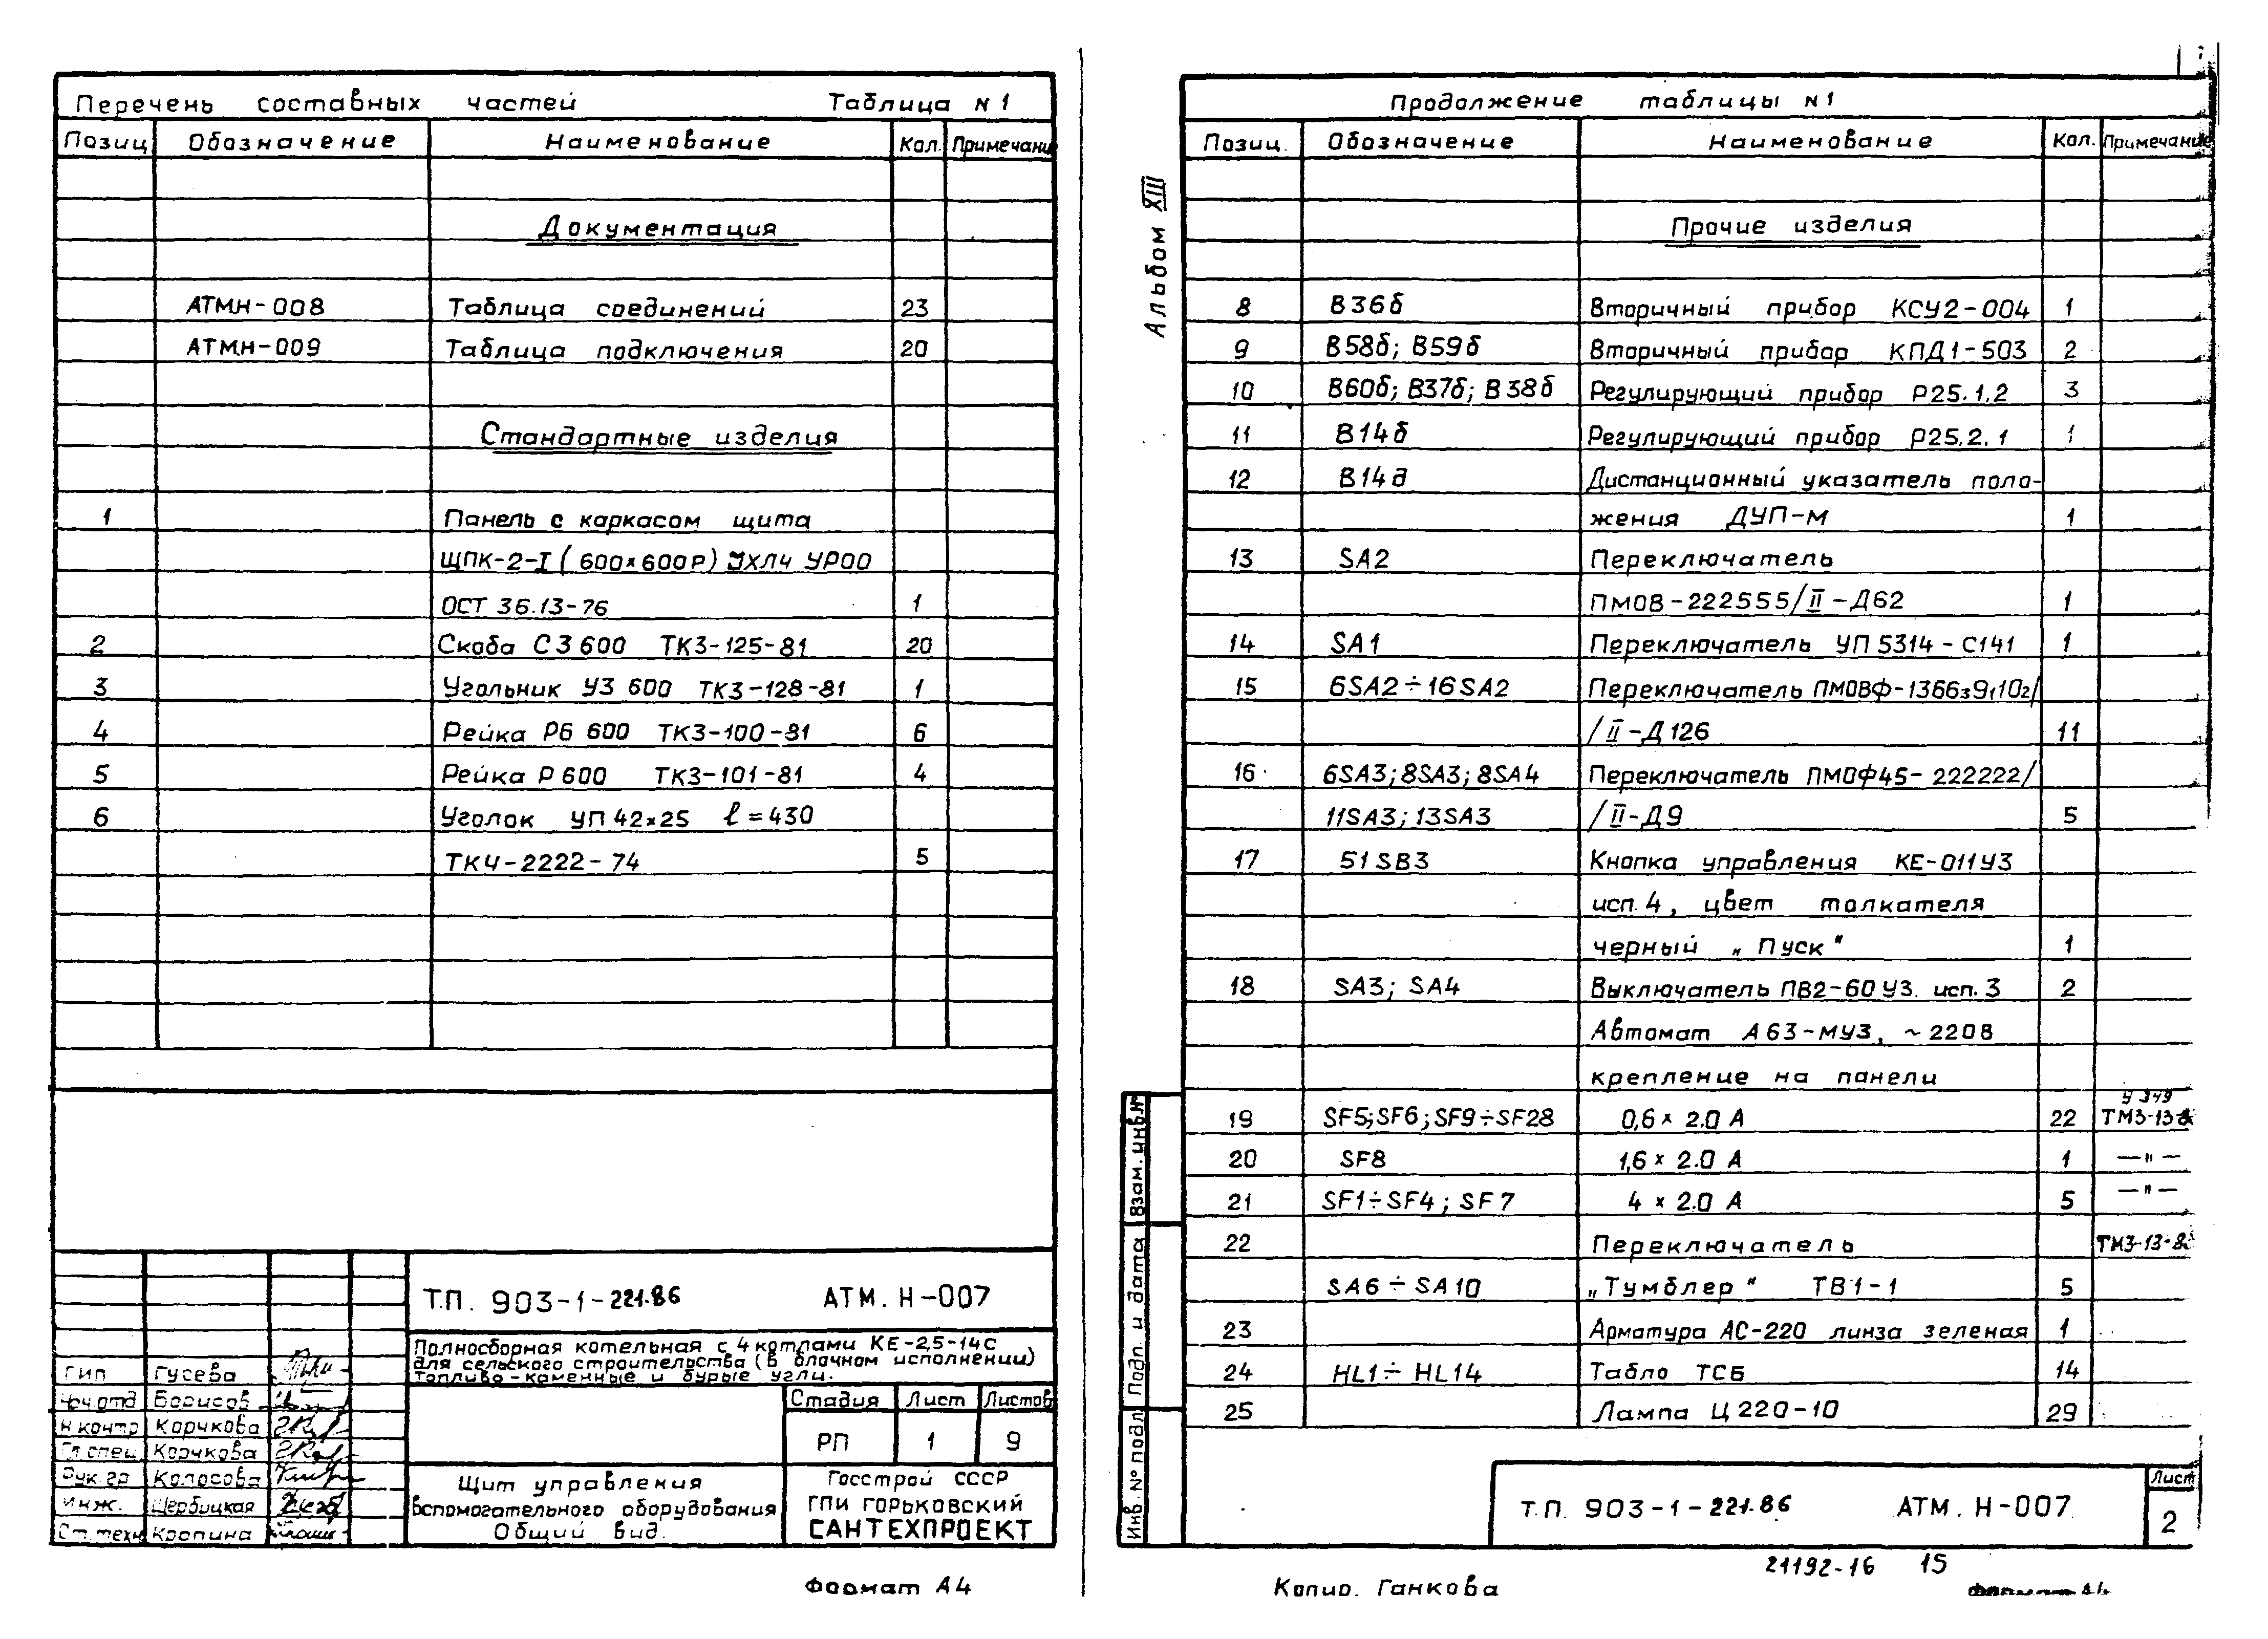 Перечень составных частей Таблица N 1
Позиц. Обозначение Наименование Кол. Примечание
Документация
АТМ.Н-008 Таблица соединений 23
АТМ.Н-009 Таблица подключения 20
Стандартные изделия
1 Панель с каркасом щита
ЩПК-2-I (600×600Р) УХЛ4 УР00
ОСТ 36.13-76 1
2 Скоба С3 600 ТК3-125-81 20
3 Угольник У3 600 ТК3-128-81 1
4 Рейка Р6 600 ТК3-100-81 6
5 Рейка Р 600 ТК3-101-81 4
6 Уголок УП 42×25 ℓ=430
ТК4-2222-74 5
Т.П. 903-1-221.86 АТМ. Н-007
Полносборная котельная с 4 котлами КЕ-2,5-14С
для сельского строительства (в блочном исполнении)
Топливо-каменные и бурые угли.
ГИП Гусева
Нач.отд Борисов
Н.контр Корчкова
Гл.спец Корчкова
Рук.гр Колосова
Инж. Щербицкая
Ст.техн Кропина
Стадия Лист Листов
РП 1 9
Щит управления
вспомогательного оборудования
Общий вид.
Госстрой СССР
ГПИ ГОРЬКОВСКИЙ
САНТЕХПРОЕКТ
Формат А4
Альбом XIII
Продолжение таблицы N 1
Позиц. Обозначение Наименование Кол. Примечание
Прочие изделия
8 В36б Вторичный прибор КСУ2-004 1
9 В58б; В59б Вторичный прибор КПД1-503 2
10 В60б; В37б; В38б Регулирующий прибор Р25.1.2 3
11 В14б Регулирующий прибор Р25.2.1 1
12 В14д Дистанционный указатель поло-
жения ДУП-М 1
13 SA2 Переключатель
ПМОВ-222555/II-Д62 1
14 SA1 Переключатель УП 5314-С141 1
15 6SA2÷16SA2 Переключатель ПМОВФ-1366₃9₁10₂/
/II-Д126 11
16 6SA3; 8SA3; 8SA4 Переключатель ПМОФ45-222222/
11SA3; 13SA3 /II-Д9 5
17 51SB3 Кнопка управления КЕ-011У3
исп.4, цвет толкателя
черный „Пуск" 1
18 SA3; SA4 Выключатель ПВ2-60 У3. исп.3 2
Автомат А63-МУ3, ~220В
крепление на панели
У 349
19 SF5;SF6;SF9÷SF28 0,6 × 2.0 А 22 ТМ3-13-8
20 SF8 1,6 × 2.0 А 1 —"—
21 SF1÷SF4; SF7 4 × 2.0 А 5 —"—
22 Переключатель ТМ3-13-8
SA6÷SA10 „Тумблер" ТВ1-1 5
23 Арматура АС-220 линза зеленая 1
24 HL1÷HL14 Табло ТСБ 14
25 Лампа Ц220-10 29
Взам. инв.№
Подп. и дата
Инв. № подл
Т.П. 903-1-221.86 АТМ. Н-007 Лист
2
21192-16 15
Копир. Ганкова